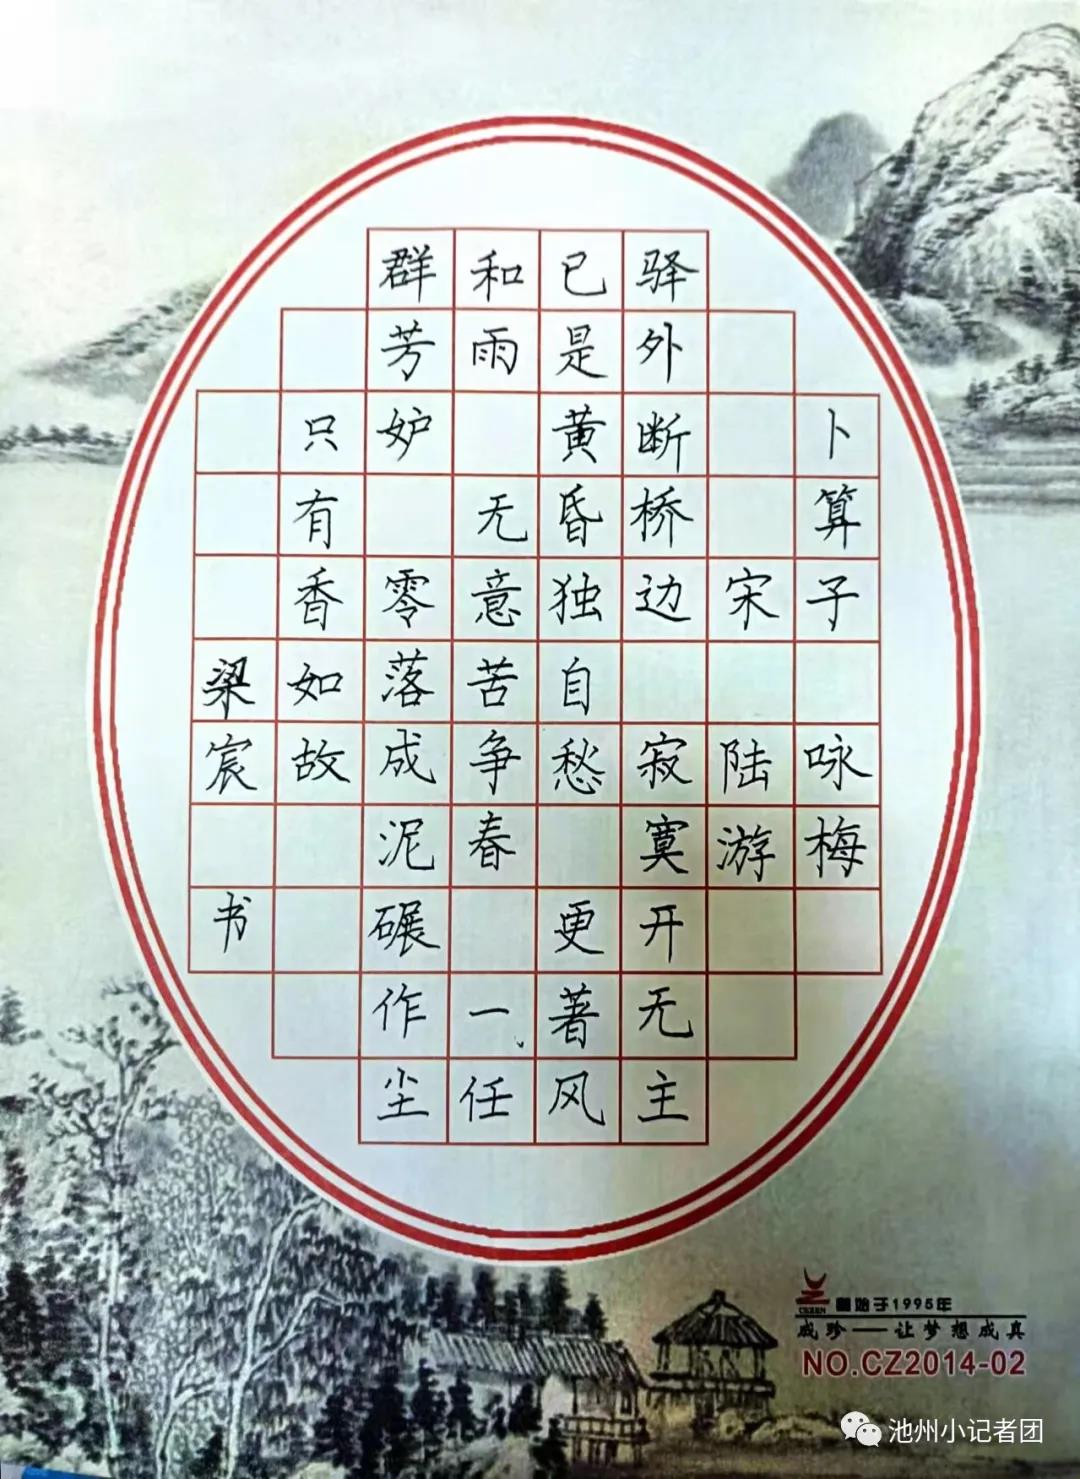 卜算子 咏梅
宋 陆游
驿外断桥边 寂寞开无主
已是黄昏独自愁 更著风
和雨 无意苦争春 一任
群芳妒 零落成泥碾作尘
只有香如故
梁宸 书
始于1995年
成珍——让梦想成真
NO.CZ2014-02
池州小记者团